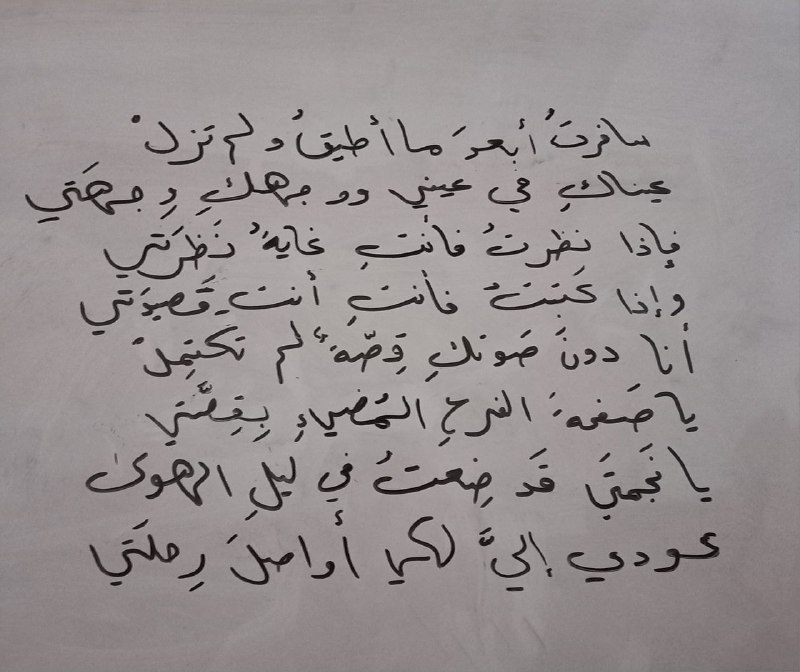 سافرتُ أبعدَ ما أطيقُ ولم تزلْ
عيناكِ في عيني ووجهكِ وِجهَتي
فإذا نظرتُ فأنتِ غايةُ نَظرَتي
وإذا كَتبتُ فأنتِ أنتِ قَصيدَتي
أنا دونَ صَوتكِ قِصّةٌ لم تكتمِلْ
يا صَفحةَ الفرحِ المُضيءِ بِقِصَّتي
يا نَجمتي قَد ضِعتُ في ليلِ الهوىٰ
عودي إليَّ لكي أُواصلَ رِحلَتي